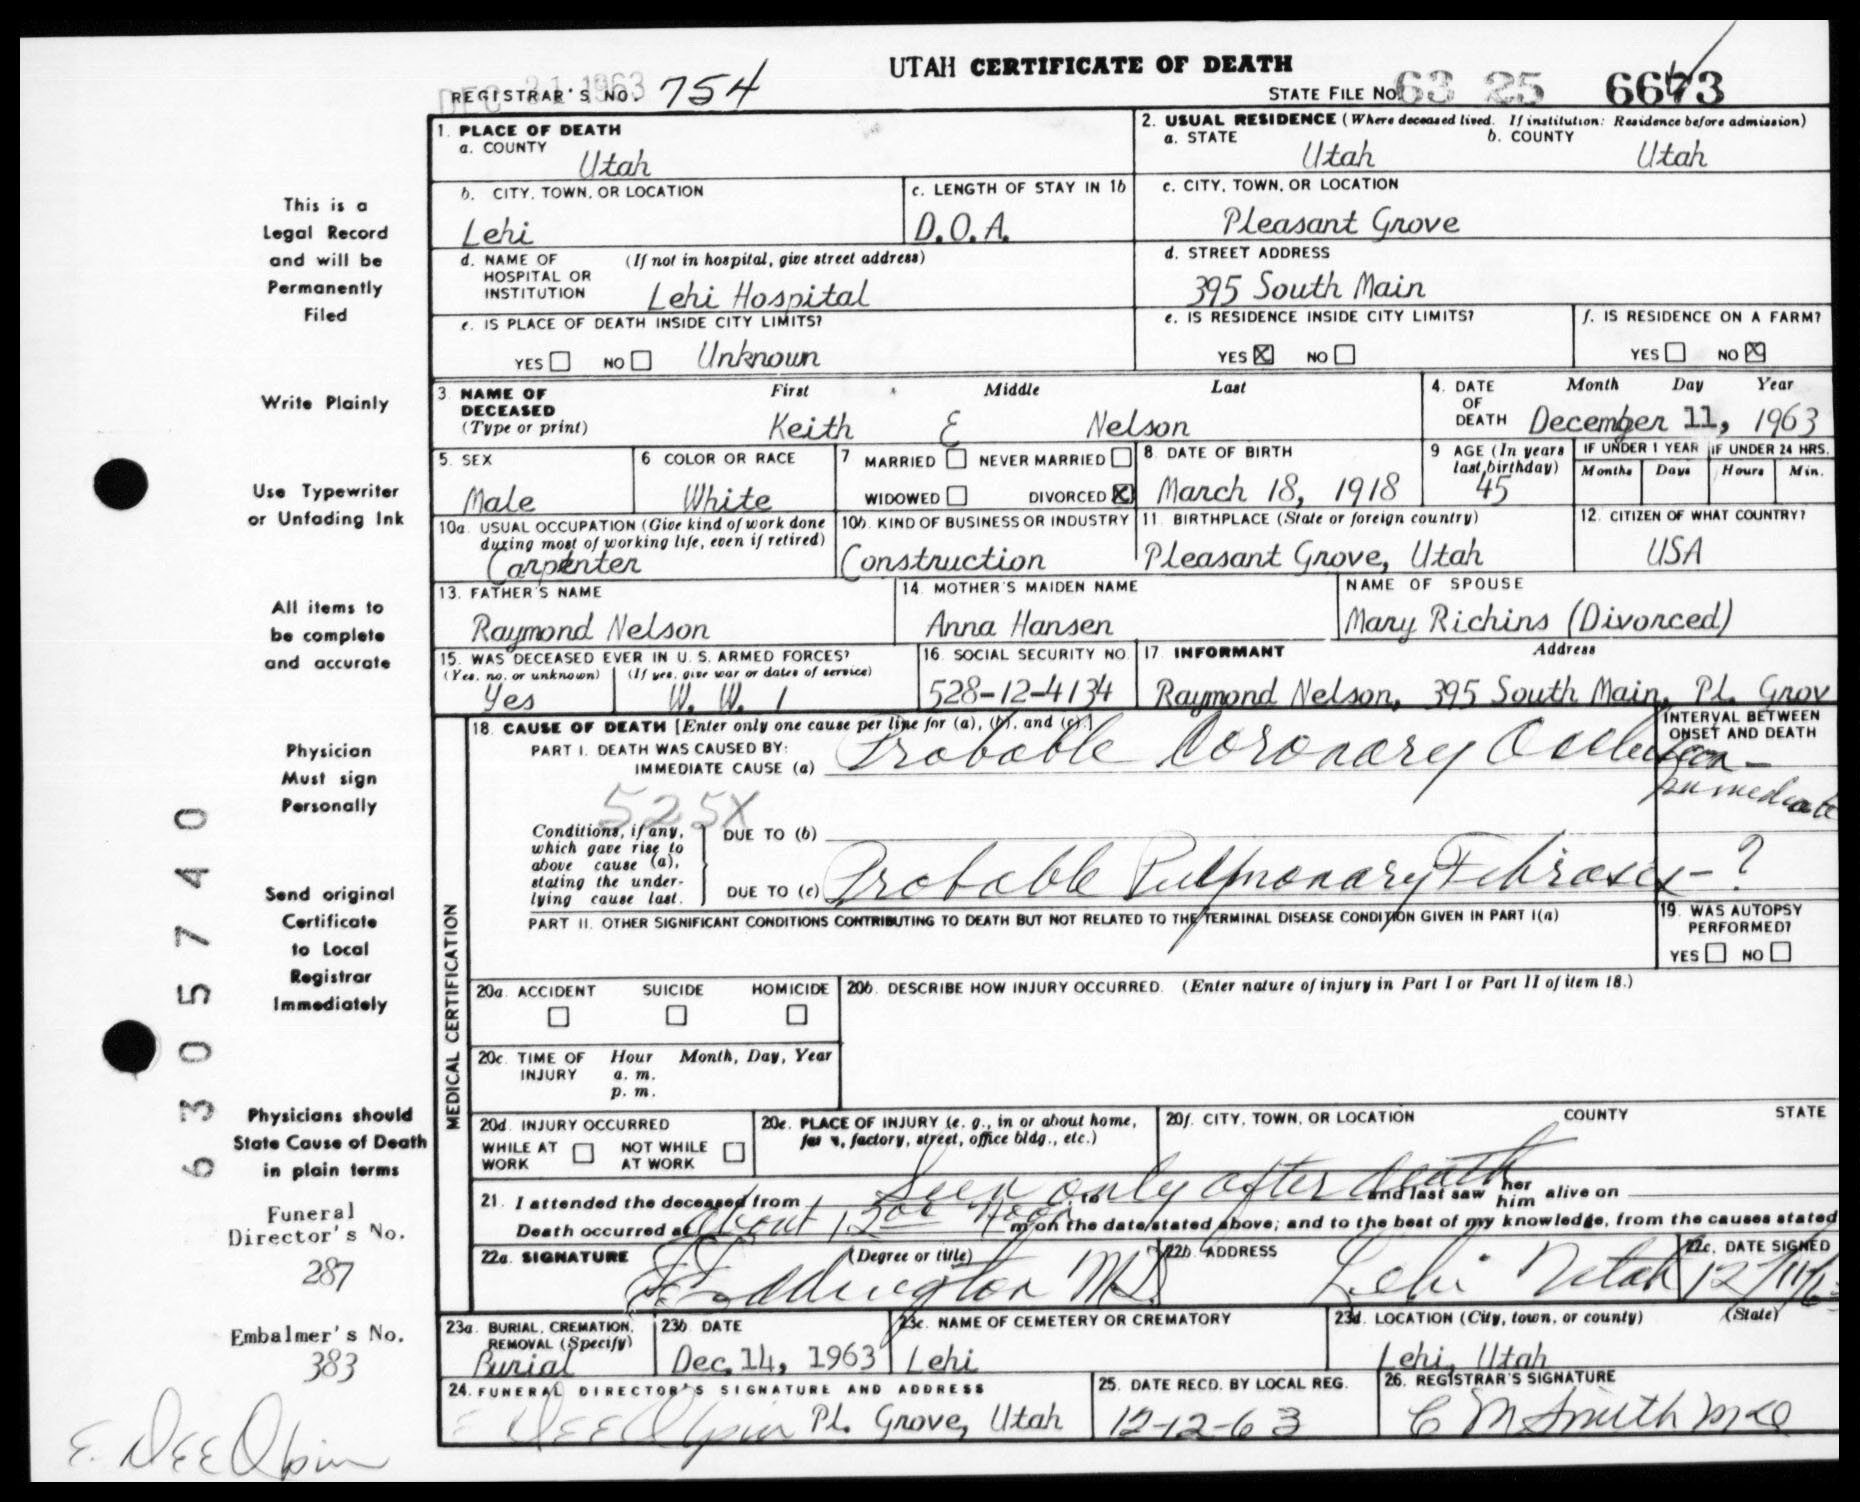 UTAH CERTIFICATE OF DEATH
DEC 21 1963
REGISTRAR'S NO. 754
STATE FILE NO. 63 25 6673
1. PLACE OF DEATH
a. COUNTY
Utah
2. USUAL RESIDENCE (Where deceased lived. If institution: Residence before admission)
a. STATE
Utah
b. COUNTY
Utah
b. CITY, TOWN, OR LOCATION
Lehi
c. LENGTH OF STAY IN 1b
D.O.A.
c. CITY, TOWN, OR LOCATION
Pleasant Grove
d. NAME OF (If not in hospital, give street address)
HOSPITAL OR
INSTITUTION Lehi Hospital
d. STREET ADDRESS
395 South Main
e. IS PLACE OF DEATH INSIDE CITY LIMITS?
YES NO Unknown
e. IS RESIDENCE INSIDE CITY LIMITS?
YES X NO
f. IS RESIDENCE ON A FARM?
YES NO X
3. NAME OF DECEASED
(Type or print)
First Middle Last
Keith E Nelson
4. DATE OF DEATH
Month Day Year
December 11, 1963
5. SEX
Male
6 COLOR OR RACE
White
7 MARRIED NEVER MARRIED
WIDOWED DIVORCED X
8. DATE OF BIRTH
March 18, 1918
9 AGE (In years
last birthday)
45
IF UNDER 1 YEAR
Months Days
IF UNDER 24 HRS.
Hours Min.
10a. USUAL OCCUPATION (Give kind of work done
during most of working life, even if retired)
Carpenter
10b. KIND OF BUSINESS OR INDUSTRY
Construction
11. BIRTHPLACE (State or foreign country)
Pleasant Grove, Utah
12. CITIZEN OF WHAT COUNTRY?
USA
13. FATHER'S NAME
Raymond Nelson
14. MOTHER'S MAIDEN NAME
Anna Hansen
NAME OF SPOUSE
Mary Richins (Divorced)
15. WAS DECEASED EVER IN U. S. ARMED FORCES?
(Yes, no, or unknown) (If yes, give war or dates of service)
Yes W. W. 1
16. SOCIAL SECURITY NO.
528-12-4134
17. INFORMANT Address
Raymond Nelson, 395 South Main, Pl. Grov
18. CAUSE OF DEATH [Enter only one cause per line for (a), (b), and (c).]
PART I. DEATH WAS CAUSED BY:
IMMEDIATE CAUSE (a) Probable Coronary Occlusion -
INTERVAL BETWEEN
ONSET AND DEATH
immediate
525X
Conditions, if any,
which gave rise to
above cause (a),
stating the under-
lying cause last.
DUE TO (b)
DUE TO (c) Probable Pulmonary Fibrosis - ?
PART II. OTHER SIGNIFICANT CONDITIONS CONTRIBUTING TO DEATH BUT NOT RELATED TO THE TERMINAL DISEASE CONDITION GIVEN IN PART I(a)
19. WAS AUTOPSY
PERFORMED?
YES NO
MEDICAL CERTIFICATION
20a. ACCIDENT SUICIDE HOMICIDE
20b. DESCRIBE HOW INJURY OCCURRED. (Enter nature of injury in Part I or Part II of item 18.)
20c. TIME OF INJURY
Hour Month, Day, Year
a. m.
p. m.
20d. INJURY OCCURRED
WHILE AT WORK NOT WHILE AT WORK
20e. PLACE OF INJURY (e. g., in or about home,
farm, factory, street, office bldg., etc.)
20f. CITY, TOWN, OR LOCATION COUNTY STATE
21. I attended the deceased from Seen only after death, to and last saw her him alive on
Death occurred at about 12 00 Noon m on the date stated above; and to the best of my knowledge, from the causes stated
22a. SIGNATURE (Degree or title)
Eddington M.D.
22b. ADDRESS
Lehi Utah
22c. DATE SIGNED
12/11/63
23a. BURIAL, CREMATION,
REMOVAL (Specify)
Burial
23b. DATE
Dec. 14, 1963
23c. NAME OF CEMETERY OR CREMATORY
Lehi
23d. LOCATION (City, town, or county) (State)
Lehi, Utah
24. FUNERAL DIRECTOR'S SIGNATURE AND ADDRESS
E. Dee Olpin Pl. Grove, Utah
25. DATE RECD. BY LOCAL REG.
12-12-63
26. REGISTRAR'S SIGNATURE
C M Smith MD
This is a
Legal Record
and will be
Permanently
Filed
Write Plainly
Use Typewriter
or Unfading Ink
All items to
be complete
and accurate
Physician
Must sign
Personally
Send original
Certificate
to Local
Registrar
Immediately
Physicians should
State Cause of Death
in plain terms
Funeral
Director's No.
287
Embalmer's No.
383
E. Dee Olpin
6305740